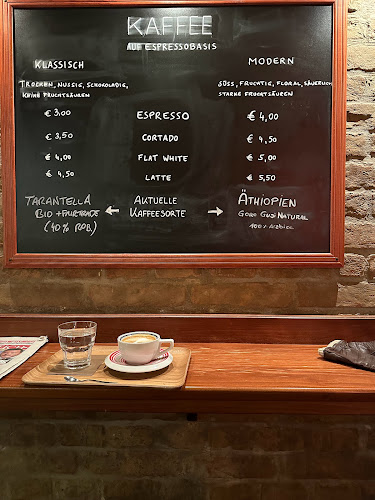 KAFFEE
AUF ESPRESSOBASIS
KLASSISCH
TROCKEN, NUSSIG, SCHOKOLADIG,
KEINE FRUCHTSÄUREN
MODERN
SÜSS, FRUCHTIG, FLORAL, SÄUERLICH
STARKE FRUCHTSÄUREN
€ 3,00 ESPRESSO € 4,00
€ 3,50 CORTADO € 4,50
€ 4,00 FLAT WHITE € 5,00
€ 4,50 LATTE € 5,50
TARANTELLA
BIO + FAIRTRADE
(40% ROB.)
← AKTUELLE →
KAFFEESORTE
ÄTHIOPIEN
GORO GUDI NATURAL
100% Arabica